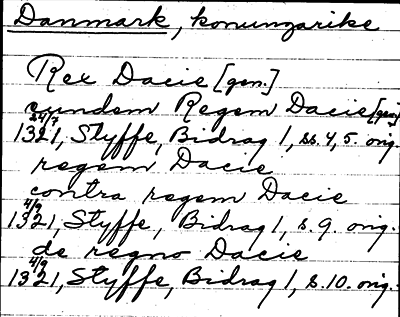 Danmark, konungarike
Rex Dacie [gen.]
eundem Regem Dacie [gen]
24/7
1321, Styffe, Bidrag 1, ss. 4, 5. orig.
regem Dacie
contra regem Dacie
4/9
1321, Styffe, Bidrag 1, s. 9. orig.
de regno Dacie
4/9
1321, Styffe, Bidrag 1, s. 10. orig.